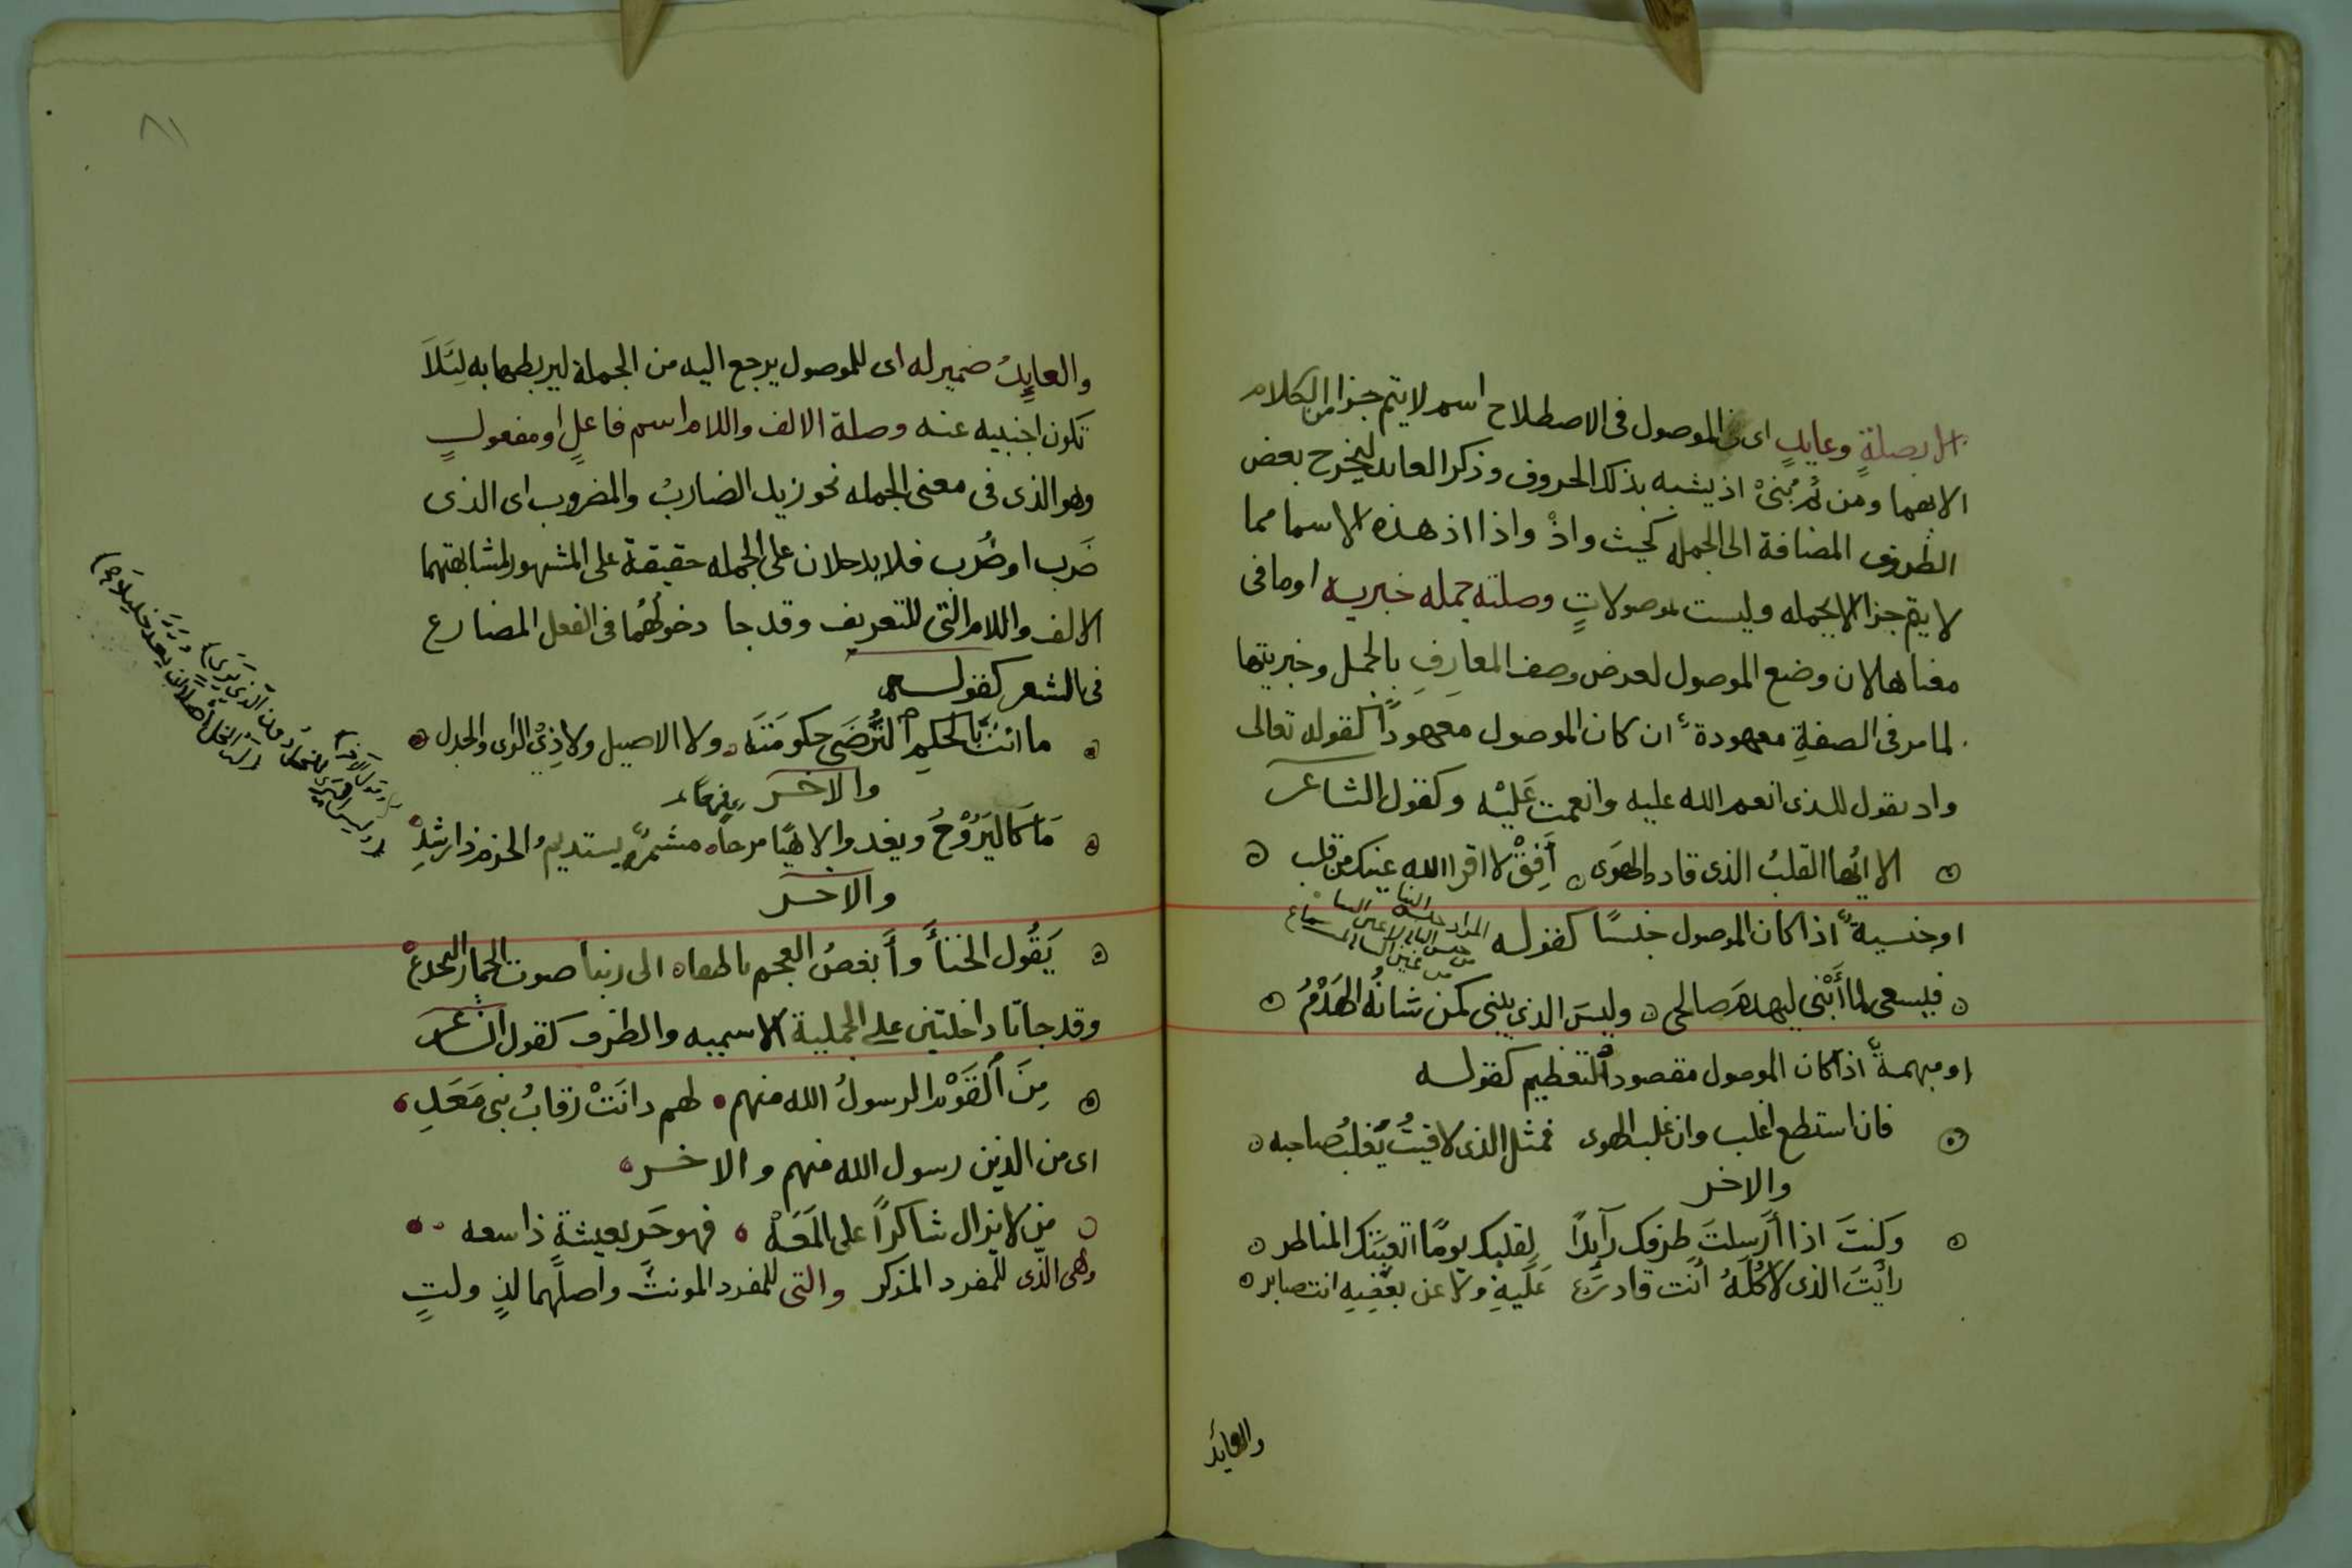 الا بصلةٍ وعايدٍ اى فى الموصول فى الاصطلاح اسم لا يتم جزا من الكلام
الا بهما ومن ثم بُنىْ اذ يشبه بذلك الحروف وذكر العايد ليخرج بعض
الظروف المضافة الى الجمله كحيث واذْ واذا اذ هذه الاسما مما
لا يتم جزا الا بجمله وليست بموصولاتٍ وصلته جمله خبريه اوما فى
معناها لان وضع الموصول لغرض وصف المعارِفِ بالجمل وخبريتها
لما مر فى الصفةِ معهودة ان كان الموصول معهوداً كقوله تعالى
واذ يقول للذى انعم الله عليه وانعمت عَليْه وكقول الشاعر
الا ايُها القلبُ الذى قاده الهوَى أَفِقْ لا اقر الله عينك من قلب
او جنسيةً اذا كان الموصول جنسًا كقوله
فيسعى لما أَبْنى ليهدم صالحى وليسَ الذى يبنى كمن شانُه الهَدْمُ
او مبهمةً اذا كان الموصول مقصود التعظيم كقوله
فان استطع اغلب وان غلب الهوى فمثل الذى لاقيتُ يُغلبُ صاحبه
والاخر
وكنتَ اذا أَرسلتَ طرفك رآيدًا لقلبك يومًا اتعبَتك المناظر
رايْتَ الذى لا كُلّهُ أنت قادرٌ عَلَيهِ ولا عن بعضِهِ انت صابر
والعائد
٨١
والعايِدُ ضمير له اى للموصول يرجع اليه من الجملة ليربطها به لِئَلاَ
تكون اجنبيه عنه وصلة الالف واللام اسم فاعلٍ او مفعولٍ
وهو الذى فى معنى الجمله نحو زيد الضاربُ والمضروب اى الذى
ضَرب او ضُرب فلا يدخلان على الجمله حقيقة على المشهور لمشابهتهما
الالف واللام التى للتعريف وقد جا دخولهُما فى الفعل المضارع
فى الشعر كقوله
ما انتَ بالحكمِ التُرضَى حكومَتَه ولا الاصيل ولا ذِىْ الراى والجدل
والاخر
مَا كَاليَرُوْحُ ويغدوا لاهيًا مرحاً مشمرٌ يستديمُ الحزم ذا رشدِ
والاخر
يَقُول الخنأَ وأَبغضُ العجم ناطقاه الى ربنا صوت الحمار اليجدعْ
وقد جاتا داخلتين على الجملية الاسميه والظرف كقول الشاعر
مِنَ القَوْم الرسولُ الله منهم لهم دانَتْ رقابُ بنى مَعَدِ
اى من الذين رسول الله منهم والاخر
من لا يزال شاكراً على المَعَهْ فهو حَرٍ بعيشةٍ ذا سعه
وهى الّذى للمفرد المذكر والتى للمفرد المونث واصلُهما لذٍ ولتٍ